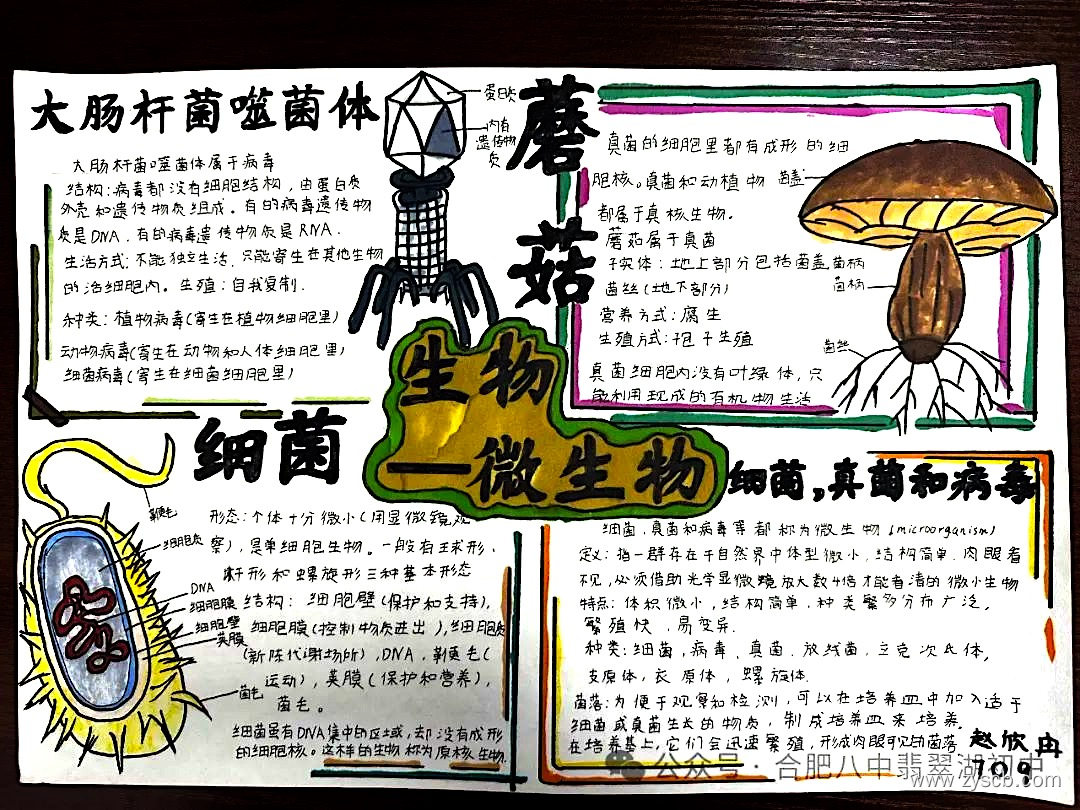 大肠杆菌噬菌体
大肠杆菌噬菌体属于病毒
结构:病毒都没有细胞结构,由蛋白质
外壳和遗传物质组成。有的病毒遗传物
质是DNA.有的病毒遗传物质是RNA.
生活方式:不能独立生活,只能寄生在其他生物
的活细胞内。生殖:自我复制.
种类:植物病毒(寄生在植物细胞里)
动物病毒(寄生在动物和人体细胞里)
细菌病毒(寄生在细菌细胞里)
蛋白质
内有
遗传物
质
蘑
菇
真菌的细胞里都有成形的细
胞核。真菌和动植物
都属于真核生物。
蘑菇属于真菌
子实体:地上部分包括菌盖,菌柄
菌丝(地下部分)
营养方式:腐生
生殖方式:孢子生殖
真菌细胞内没有叶绿体,只
能利用现成的有机物生活
菌盖
菌柄
菌丝
生物
—微生物
细菌
形态:个体十分微小(用显微镜观
察),是单细胞生物。一般有球形.
杆形和螺旋形三种基本形态
结构:细胞壁(保护和支持),
细胞膜(控制物质进出),细胞质
(新陈代谢场所),DNA,鞭毛(
运动),荚膜(保护和营养),
菌毛。
细菌虽有DNA集中的区域,却没有成形
的细胞核。这样的生物称为原核生物.
鞭毛
细胞质
DNA
细胞膜
细胞壁
荚膜
菌毛
细菌,真菌和病毒
细菌,真菌和病毒等都称为微生物(microorganism)
定义:指一群存在于自然界中体型微小,结构简单.肉眼看
不见,必须借助光学显微镜放大数4倍才能看清的微小生物
特点:体积微小,结构简单,种类繁多分布广泛,
繁殖快,易变异.
种类:细菌,病毒、真菌、放线菌、立克次氏体,
支原体,衣原体,螺旋体.
菌落:为便于观察和检测,可以在培养皿中加入适于
细菌或真菌生长的物质,制成培养皿来培养.
在培养基上,它们会迅速繁殖,形成肉眼可见的菌落
赵欣冉
709
公众号·合肥八中翡翠湖初中
www.zyscb.com